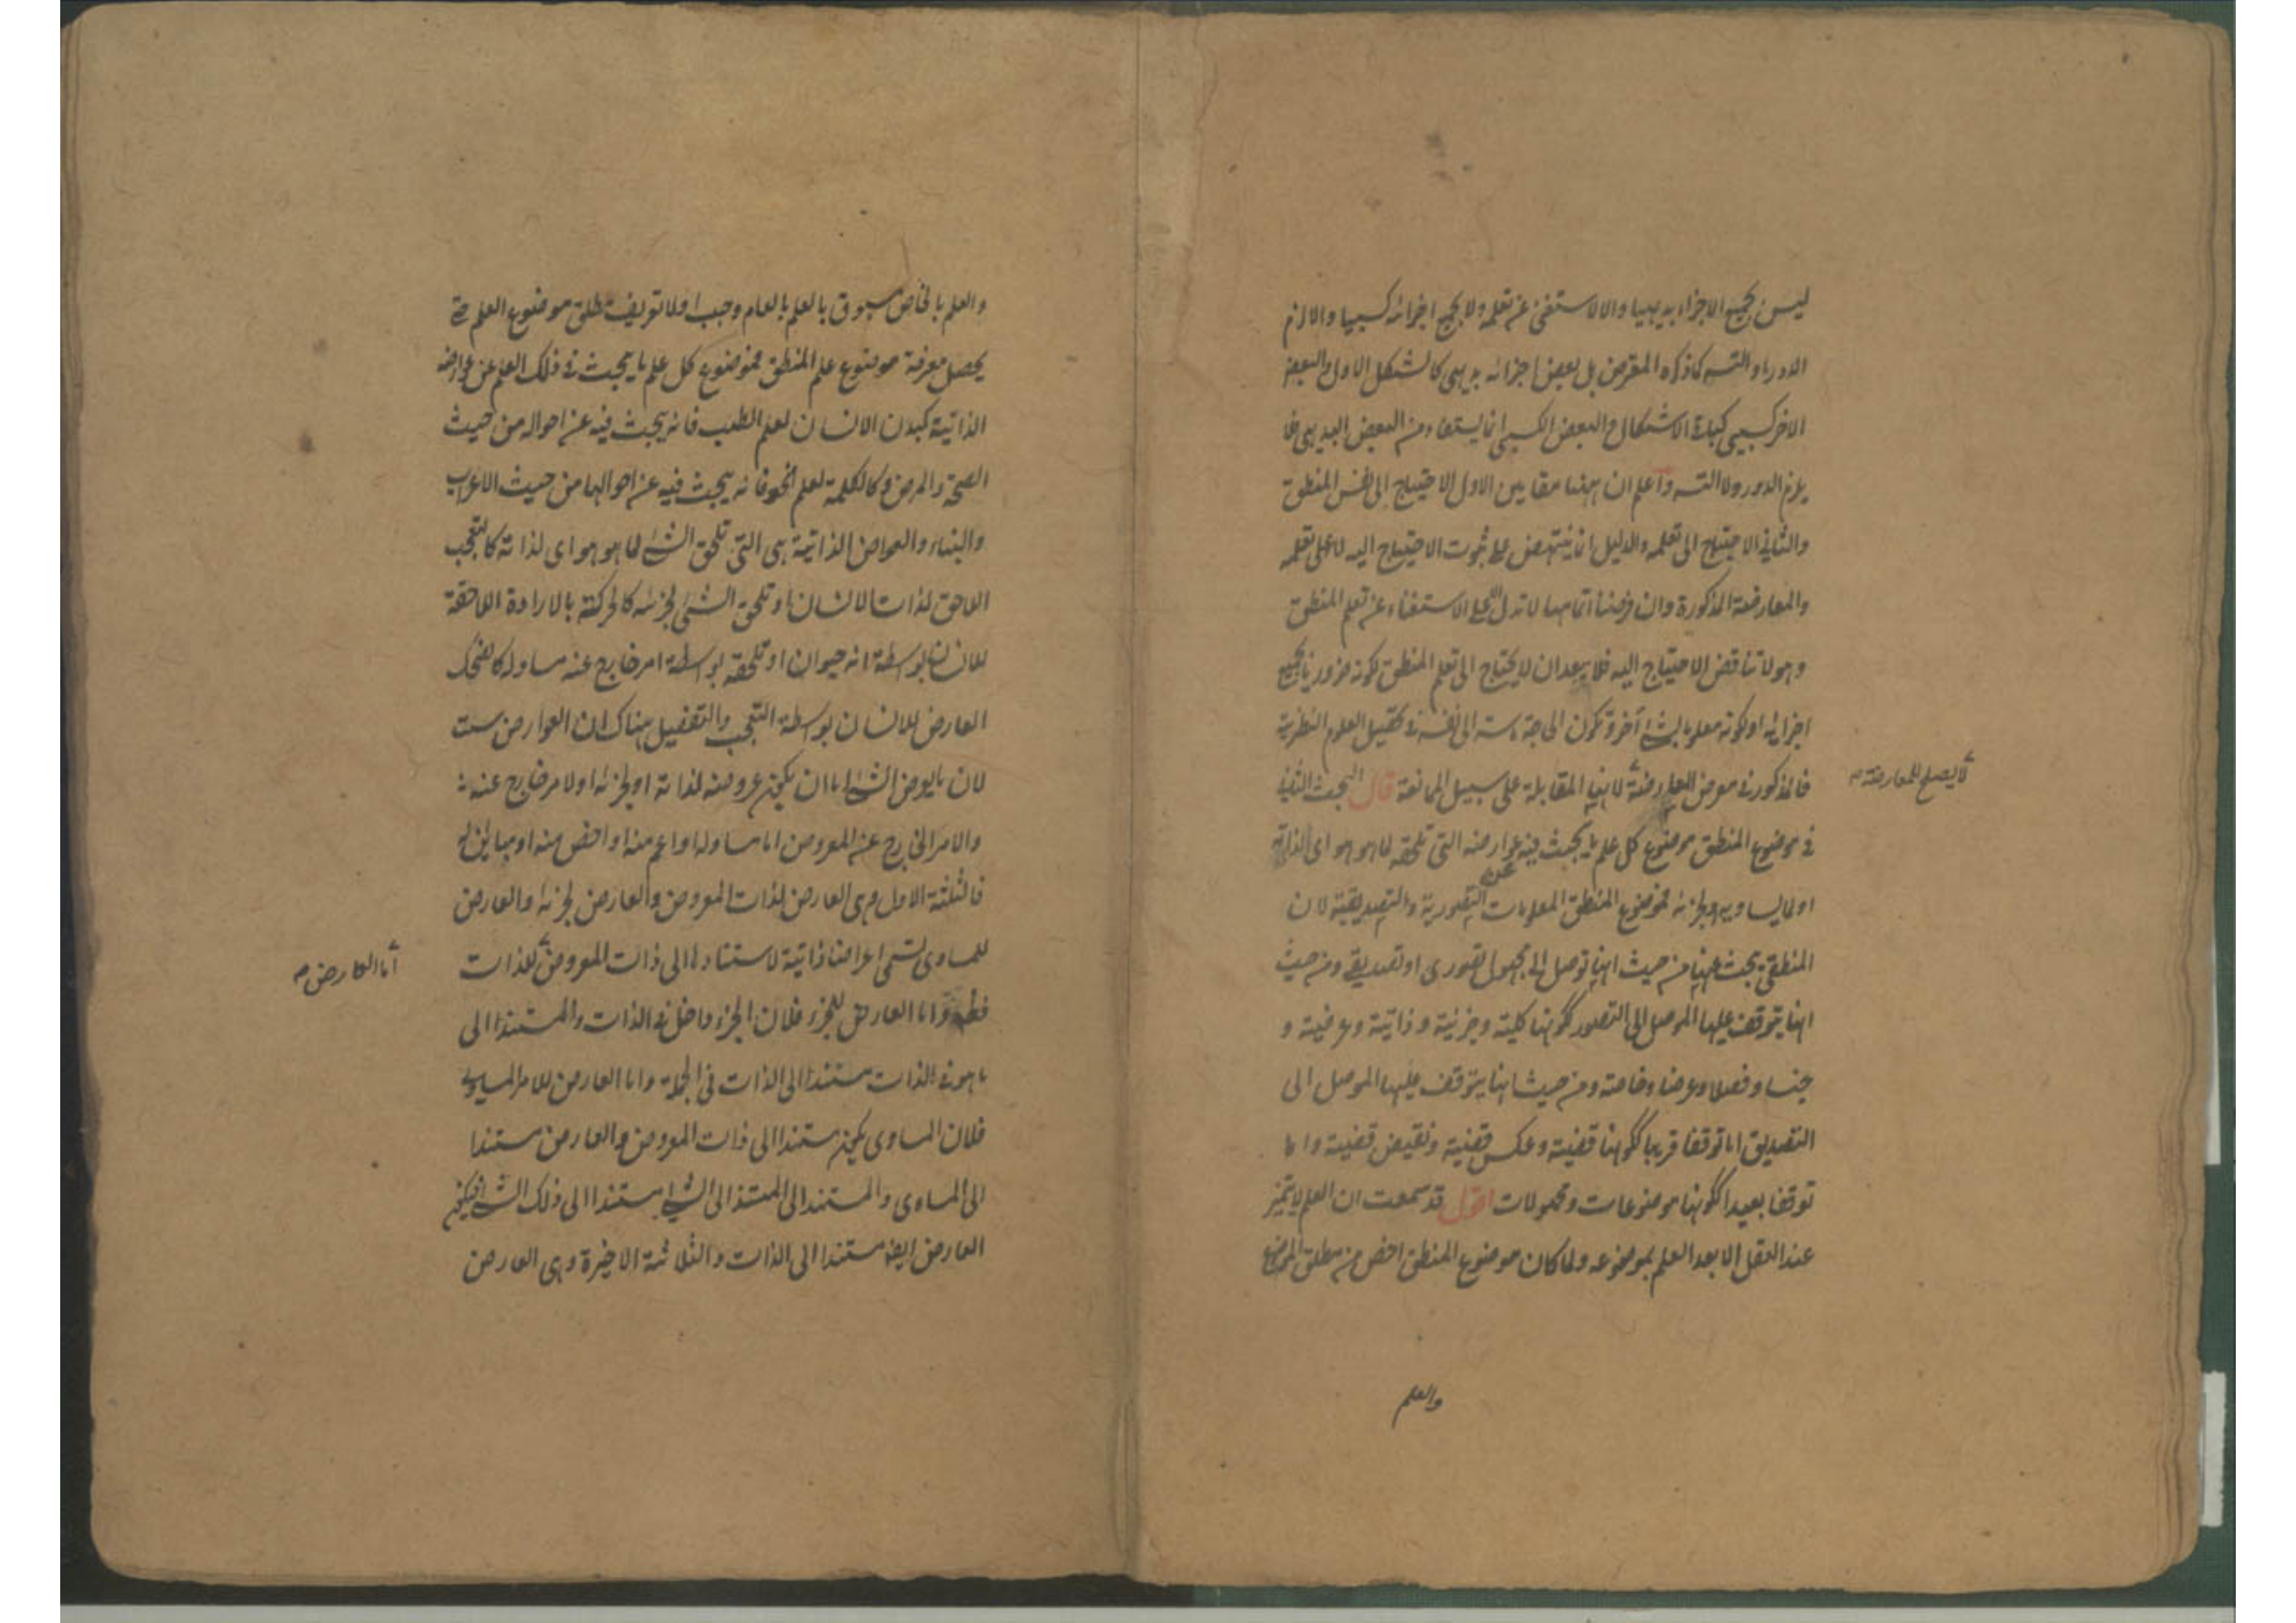 ليس بجميع الاجزاء بديهيا والا لاستغنى عن تعلمه ولا بجميع اجزائه كسبيا والا لزم
الدور او التسه كما ذكره المعترض بل بعض اجزائه بديهى كالشكل الاول والبعض
الاخر كسبي كباقى الاشكال والبعض الكسبي انما يستفاد من البعض البديهى فلا
يلزم الدور ولا التسه واعلم ان ههنا مقامين الاول الاحتياج الى نفس المنطق
والثاني الاحتياج الى تعلمه والدليل انما ينتهض على ثبوت الاحتياج اليه لا على تعلمه
والمعارضة المذكورة وان فرضنا اتمامها لا تدل الا على الاستغناء عن تعلم المنطق
وهو لا تناقض الاحتياج اليه فلا يبعد ان لا يحتاج الى تعلم المنطق لكونه ضروريا بجميع
اجزائه او لكونه معلوما بشئ آخر وتكون الحاجة ماسة الى نفسه في تحصيل العلوم النظرية
فالمذكور في معرض المعارضة لانها المقابلة على سبيل الممانعة قال البحث الثاني
لا يصلح للمعارضة
في موضوع المنطق موضوع كل علم ما يبحث فيه عن عوارضه التى تلحقه لما هو هو اى لذاته
او لما يساويه او لجزئه فموضوع المنطق المعلومات التصورية والتصديقية لان
المنطقى يبحث عنها من حيث انها توصل الى مجهول تصورى او تصديقي ومن حيث
انها يتوقف عليها الموصل الى التصور ككونها كلية وجزئية وذاتية وعرضية و
جنسا وفصلا وعرضا وخاصة ومن حيث انها يتوقف عليها الموصل الى
التصديق اما توقفا قريبا ككونها قضية وعكس قضية ونقيض قضية واما
توقفا بعيدا ككونها موضوعات ومحمولات اقول قد سمعت ان العلم لا يتميز
عند العقل الا بعد العلم بموضوعه ولما كان موضوع المنطق اخص من مطلق الموضوع
والعلم
والعلم بالخاص مسبوق بالعلم بالعام وجب اولا تعريف مطلق موضوع العلم حتى
يحصل معرفة موضوع علم المنطق فموضوع كل علم ما يبحث في ذلك العلم عن عوارضه
الذاتية كبدن الانسان لعلم الطب فانه يبحث فيه عن احواله من حيث
الصحة والمرض وكالكلمة لعلم النحو فانه يبحث فيه عن احوالها من حيث الاعراب
والبناء والعوارض الذاتية هى التى تلحق الشئ لما هو هو اى لذاته كالتعجب
اللاحق لذات الانسان او تلحق الشئ لجزئه كالحركة بالارادة اللاحقة
للانسان بواسطة انه حيوان او تلحقه بواسطة امر خارج عنه مساو له كالضحك
العارض للانسان بواسطة التعجب والتفصيل هناك ان العوارض ست
لان ما يعرض الشئ اما ان يكون عروضه لذاته او لجزئه او لامر خارج عنه
والامر الخارج عن المعروض اما مساو له او اعم منه او اخص منه او مباين له
فالثلثة الاول وهى العارض لذات المعروض والعارض لجزئه والعارض
للمساوى تسمى اعراضا ذاتية لاستنادها الى ذات المعروض للذات
اما العارض
فظ واما العارض للجزء فلان الجزء داخل في الذات والمستند الى
ما هو في الذات مستند الى الذات في الجملة واما العارض للامر المساوى
فلان المساوى يكون مستندا الى ذات المعروض والعارض مستندا
الى المساوى والمستند الى المستند الى الشئ مستندا الى ذلك الشئ فيكون
العارض ايضا مستندا الى الذات والثلاثة الاخيرة وهى العارض